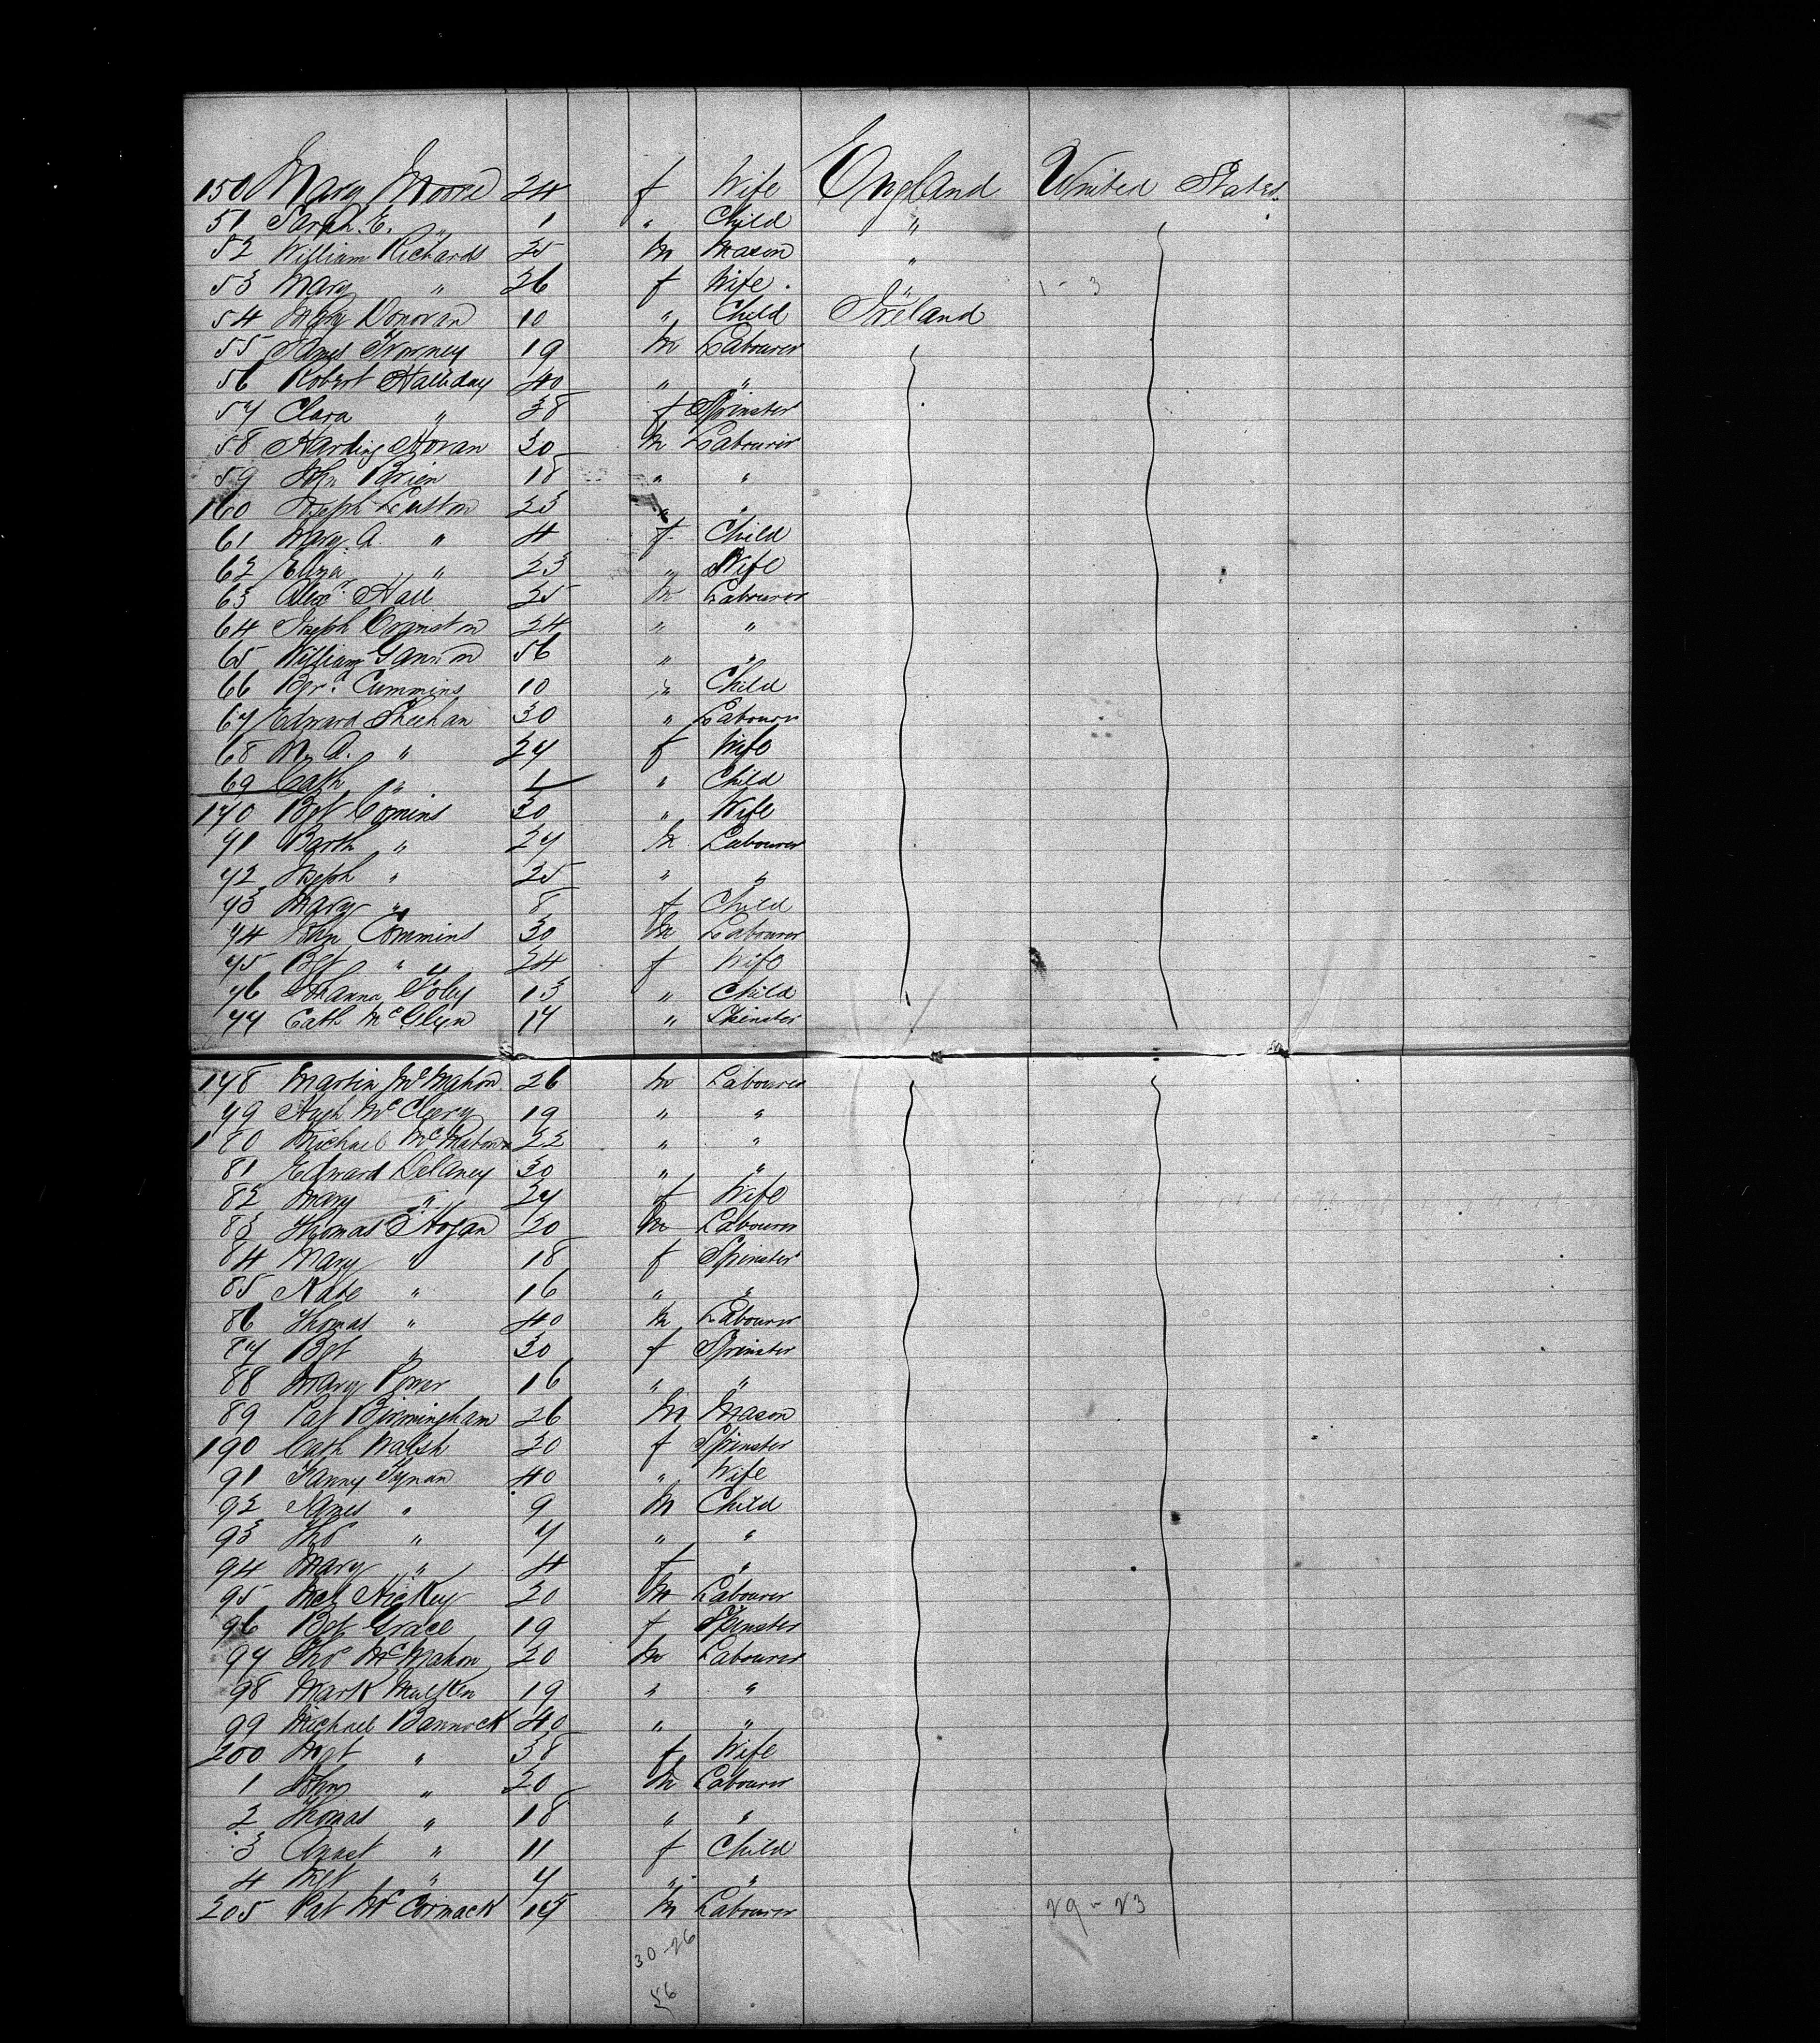 150 Mary Moore 24 f Wife England United States
51 Sarah E. " 1 " Child "
52 William Richards 25 m Mason "
53 Mary " 26 f Wife " 1-3
54 Mary Donovan 10 " Child Ireland
55 James 19 m Labourer
56 Robert Halliday 40 " "
57 Clara " 38 f Spinster
58 Harding Horan 30 m Labourer
59 John Brien 18 " "
160 Joseph 23 " "
61 Mary A. " 4 f Child
62 Eliza " 23 " Wife
63 Alexr Hall 25 m Labourer
64 Joseph Orginston 24 " "
65 William Gannon 56 " "
66 Cummins 10 " Child
67 Edward Sheehan 30 " Labourer
68 M. A. " 27 f Wife
69 Cath " 1 " Child
170 Bgt Comins 30 " Wife
71 Barth " 27 m Labourer
72 Joseph " 25 " "
73 Mary " 8 f Child
74 John Commins 30 m Labourer
75 Bgt " 24 f Wife
76 Johanna Foley 13 " Child
77 Cath McGlyn 17 " Spinster
178 Martin McMahon 26 m Labourer
79 Hugh McCleery 19 " "
180 Michael 22 " "
81 Edward Delaney 30 " "
82 Mary " 27 f Wife
83 Thomas Hogan 20 m Labourer
84 Mary " 18 f Spinster
85 Kate " 16 " "
86 Thomas " 40 m Labourer
87 Bgt " 30 f Spinster
88 Mary Power 16 " "
89 Pat Birmingham 26 m Mason
190 Cath Walsh 20 f Spinster
91 Fanny Tynan 40 " Wife
92 James " 9 m Child
93 Thos " 7 " "
94 Mary " 4 f "
95 Mcl Hickey 20 m Labourer
96 Bgt Grace 19 f Spinster
97 Thos McMahon 20 m Labourer
98 Mark 19 " "
99 Michael Bannock 40 " "
200 Mgt " 38 f Wife
1 " 20 m Labourer
2 Thomas " 18 " "
3 Anast " 11 f Child
4 Mgt " 7 " "
205 Pat McCormack m Labourer 29-23
30-26
56